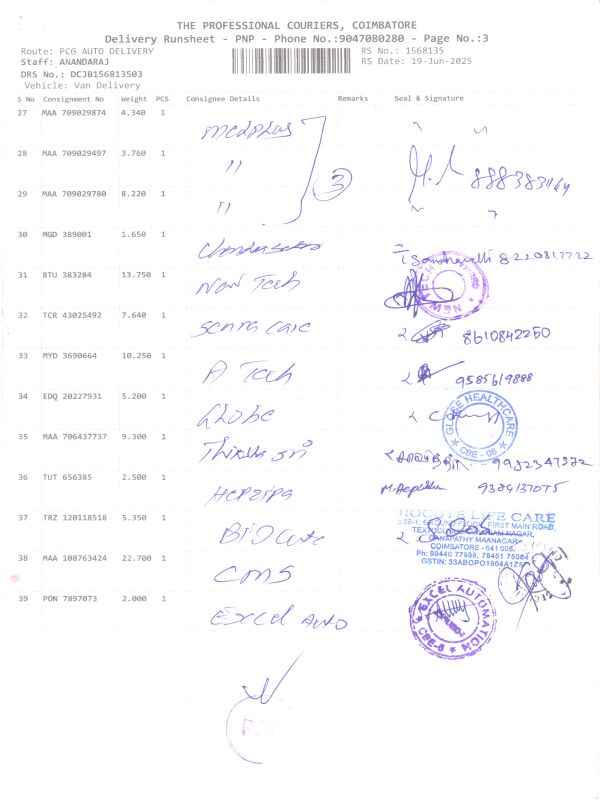 THE PROFESSIONAL COURIERS, COIMBATORE
Delivery Runsheet - PNP - Phone No.:9047080280 - Page No.:3
Route: PCG AUTO DELIVERY RS No.: 1568135
Staff: ANANDARAJ RS Date: 19-Jun-2025
DRS No.: DCJB156813503
Vehicle: Van Delivery
S No Consignment No Weight PCS Consignee Details Remarks Seal & Signature
27 MAA 709029874 4.340 1 Medplus
28 MAA 709029497 3.760 1 "
3
29 MAA 709029780 8.220 1 "
30 MGD 389001 1.650 1 8220817722
31 BTU 383284 13.750 1 New Tech
32 TCR 43025492 7.640 1 Care 8610842250
33 MYD 3690664 10.250 1 A Tech 9585619888
34 EDQ 20227931 5.200 1 Globe
GLOBE HEALTHCARE
CBE - 06
35 MAA 706437737 9.300 1 Thirukh Sri
36 TUT 656385 2.500 1 9384137075
37 TRZ 120118518 5.350 1 Biocute
BIOCUTE LIFE CARE
FIRST MAIN ROAD,
NAGAR,
GANAPATHY MAANAGAR
COIMBATORE - 641 006
Ph: 99440 77988, 78451 75084
38 MAA 108763424 22.700 1 CMS
GSTIN: 33ABOPO1904A1Z5
39 PON 7897073 2.000 1 Excel Auto
EXCEL AUTOMATION
CBE-6